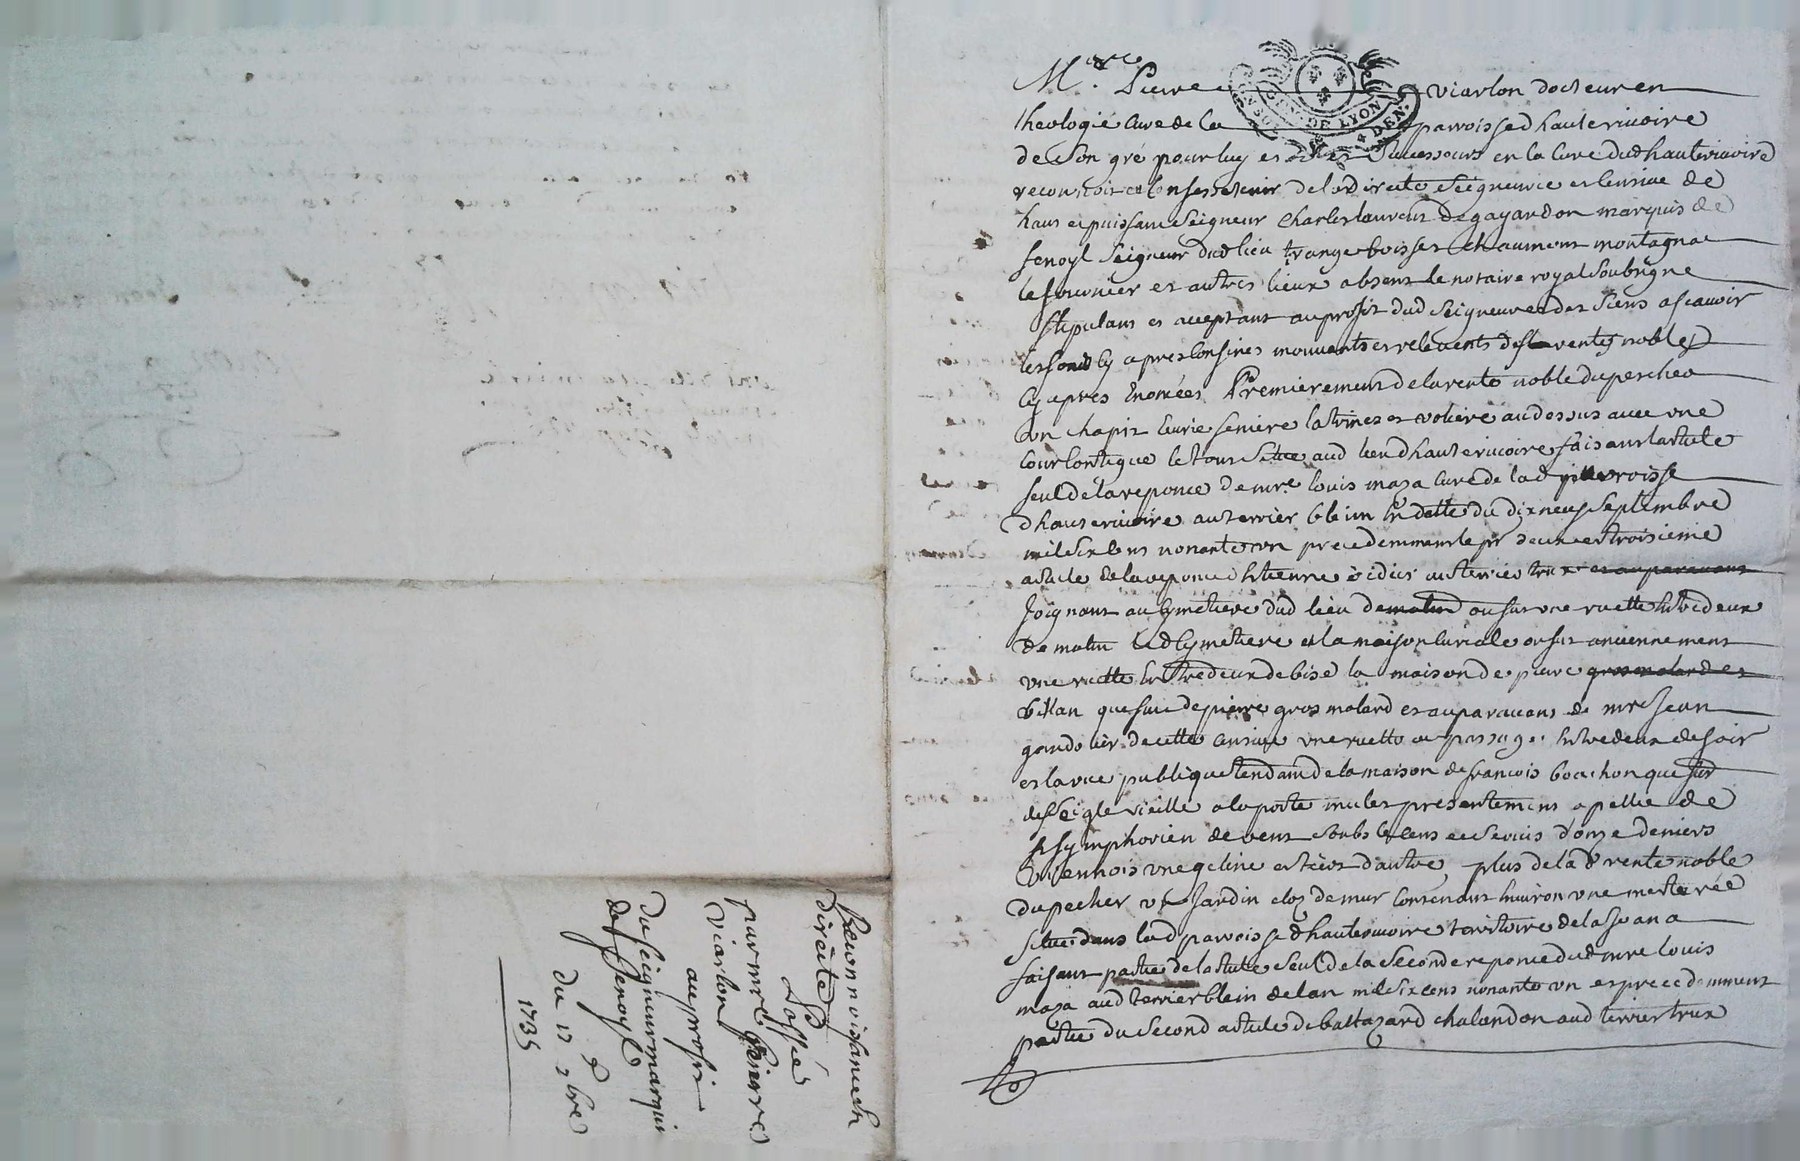 Mre. Pierre viarlon docteur en
theologie Curé de La parroisse d hauterivoire
de son gré pour luy et ses successeurs en la Cure dud hauterivoire
reconnoit et Confesse tenir de la directe Seigneurie et Censive de
haut et puissant Seigneur Charles laurent de gayardon marquis de
fenoyl Seigneur dud lieu trange boisset Chaumont montagna
le fournier et autres lieux absent le notaire royal soubsigné
stipulant et acceptant au profit dud Seigneur et des siens ascavoir
les fonds Cy apres Confinés mouvants et relevants des rentes nobles
Cy apres Enoncées Premierement de la rente noble du percher
un chapit Ecurie et voliere au dessus avec une
Cour Contigue le tout Situé aud lieu d hauterivoire faisant larticle
seul de la reponce de mre. louis maza Curé de lad parroisse
d hauterivoire au terrier blein En datte du dix neuf septembre
mil six Cens nonante un precedemment le pr deux et troisieme
article de la reponce d Etienne au terrier trux et auparavant
Joignant au Cymetiere dud lieu de matin ou fut une ruette Entredeux
de matin led Cymetiere et la maison Curiale ou fut anciennement
une ruette Entredeux de bise la maison de pierre gros molard et
villan que fut de pierre gros molard et auparavant de mre Jean
de cette Censive une ruette ou passage Entredeux de soir
et la rue publique tendant de la maison de francois bouchon que fut
de l'Eglise vieille a la porte presentement apellée de
st symphorien de vent soubs le Cens et servis d'onze deniers
viennois une geline et d'autre, plus de lad rente noble
du pecher un Jardin clos de mur Contenant Environ une meterée
Situé dans lad parroisse d hauterivoire territoire de la
faisant partie de larticle seul de la seconde reponce dud mre louis
maza aud terrier blein de lan mil six cens nonante un et precedemment
partie du second article de baltazard chalandon aud terrier trux
Reconnoissance En
directe
passée
par mre Pierre
viarlon
au profit
du seigneur marquis
de fenoyl
du 17 xbre
1735